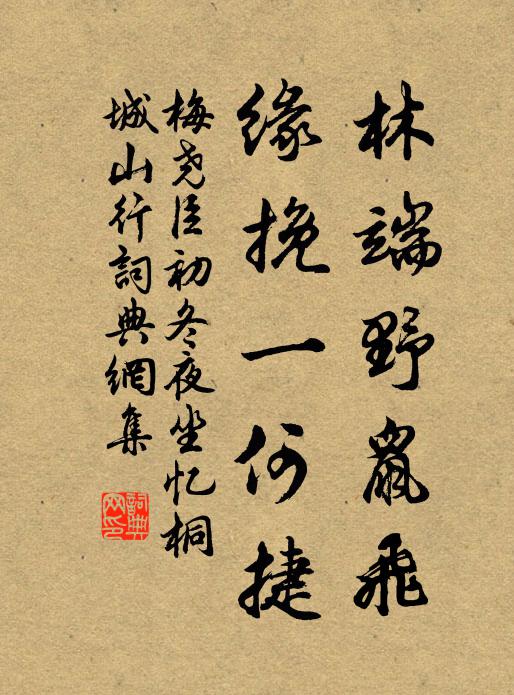 林端野鼠飛
緣挽一何捷
梅尧臣初冬夜坐忆桐
城山行詞典網集
詞典网印